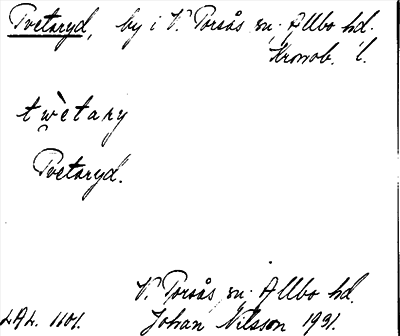 Tvetaryd, by i V. Torsås sn. Allbo hd.
Kronob. l.
twètary
Tvetaryd.
V. Torsås, sn. Allbo hd.
LAL. 1101. Johan Nilsson 1931.